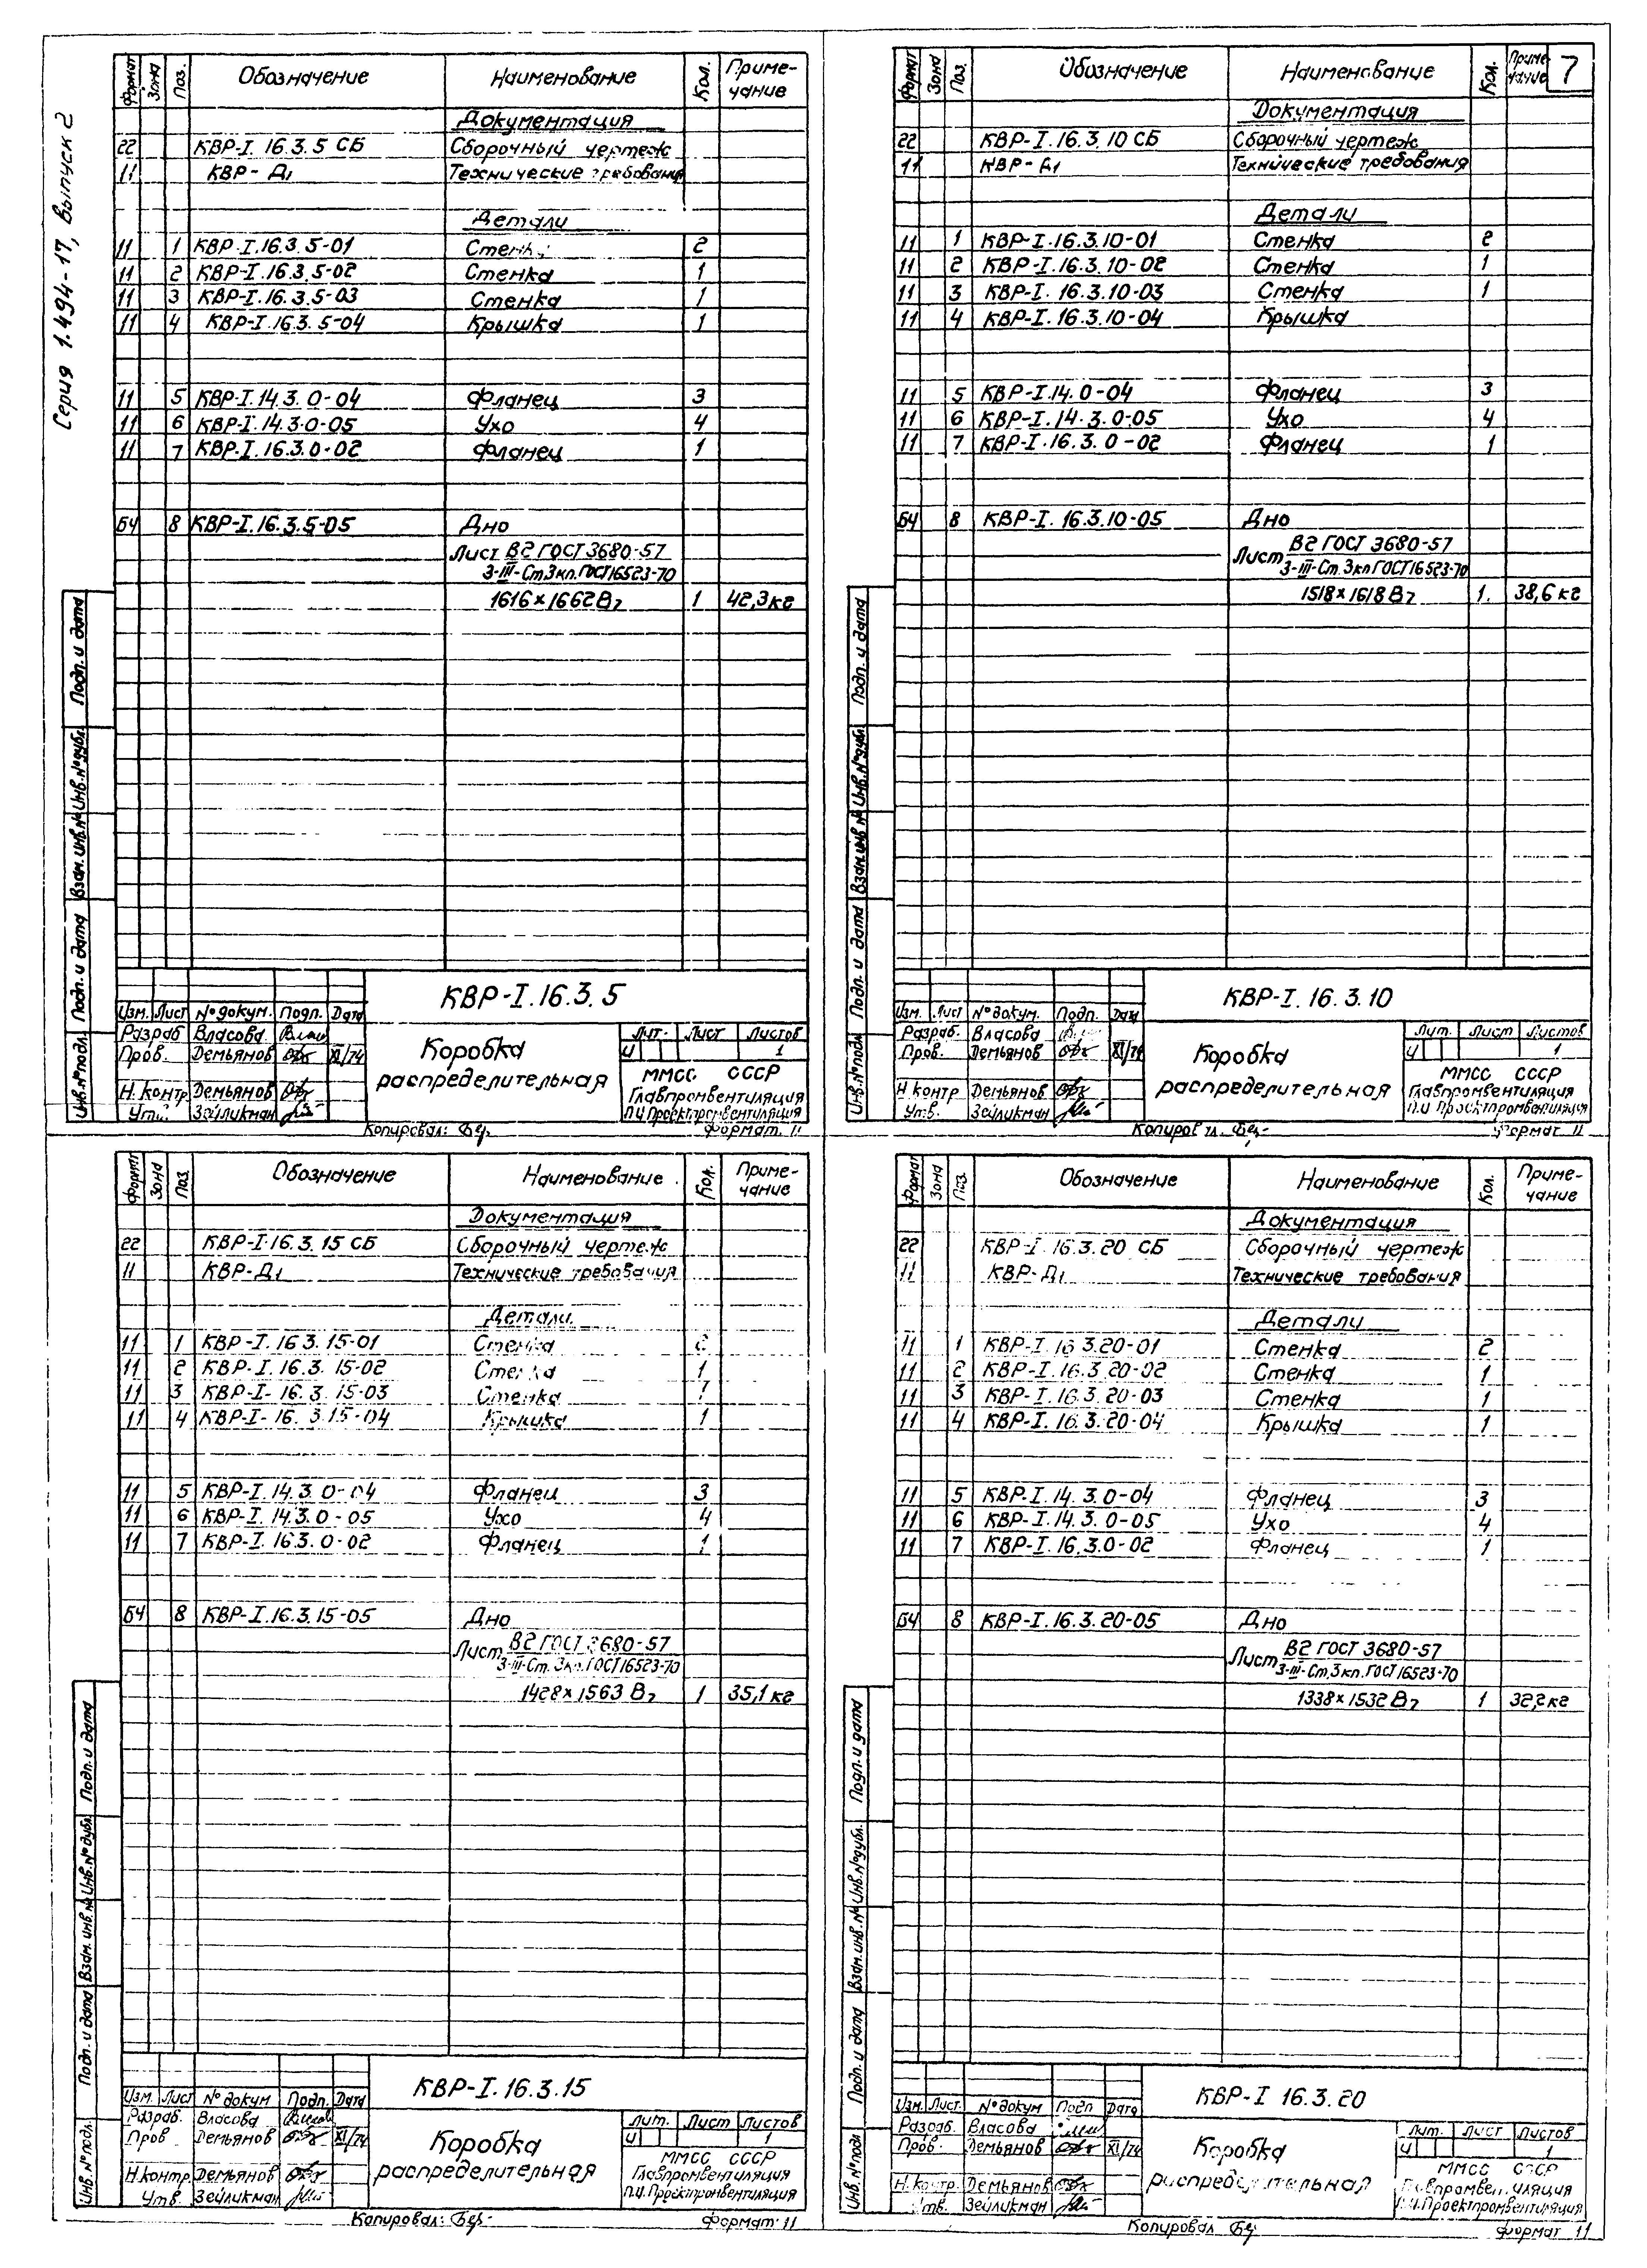 Серия 1.494-17, Выпуск 2
7
Формат Зона Поз. Обозначение Наименование Кол. Примечание
Документация
22 КВР-I.16.3.5 СБ Сборочный чертеж
11 КВР-Д1 Технические требования
Детали
11 1 КВР-I.16.3.5-01 Стенка 2
11 2 КВР-I.16.3.5-02 Стенка 1
11 3 КВР-I.16.3.5-03 Стенка 1
11 4 КВР-I.16.3.5-04 Крышка 1
11 5 КВР-I.14.3.0-04 Фланец 3
11 6 КВР-I.14.3.0-05 Ухо 4
11 7 КВР-I.16.3.0-02 Фланец 1
БЧ 8 КВР-I.16.3.5-05 Дно
Лист В2 ГОСТ 3680-57
3-III-Ст.3кп.ГОСТ16523-70
1616×1662 В7 1 42,3кг
Инв.№подл. Подп. и дата Взам.инв.№ Инв.№дубл. Подп. и дата
КВР-I.16.3.5
Изм. Лист №докум. Подп. Дата
Разраб Власова
Пров. Демьянов XI/74
Н.контр Демьянов
Утв. Зейликман
Коробка
распределительная
Лит. Лист Листов
И 1
ММСС СССР
Главпромвентиляция
П.И.Проектпромвентиляция
Копировал: Формат 11
Формат Зона Поз. Обозначение Наименование Кол. Примечание
Документация
22 КВР-I.16.3.10 СБ Сборочный чертеж
11 КВР-Д1 Технические требования
Детали
11 1 КВР-I.16.3.10-01 Стенка 2
11 2 КВР-I.16.3.10-02 Стенка 1
11 3 КВР-I.16.3.10-03 Стенка 1
11 4 КВР-I.16.3.10-04 Крышка
11 5 КВР-I.14.0-04 Фланец 3
11 6 КВР-I.14.3.0-05 Ухо 4
11 7 КВР-I.16.3.0-02 Фланец 1
БЧ 8 КВР-I.16.3.10-05 Дно
Лист В2 ГОСТ 3680-57
3-III-Ст.3кп ГОСТ16523-70
1518×1618 В7 1. 38,6кг
Инв.№подл Подп. и дата Взам.инв № Инв.№дубл. Подп. и дата
КВР-I.16.3.10
Изм. Лист №докум. Подп. Дата
Разраб. Власова
Пров. Демьянов XI/74
Н.контр Демьянов
Утв. Зейликман
Коробка
распределительная
Лит. Лист Листов
И 1
ММСС СССР
Главпромвентиляция
П.И Проектпромвентиляция
Копировал. Формат 11
Формат Зона Поз. Обозначение Наименование Кол. Примечание
Документация
22 КВР-I-16.3.15 СБ Сборочный чертеж
11 КВР-Д1 Технические требования
Детали
11 1 КВР-I.16.3.15-01 Стенка 2
11 2 КВР-I.16.3.15-02 Стенка 1
11 3 КВР-I-16.3.15-03 Стенка 1
11 4 КВР-I-16.3.15-04 Крышка 1
11 5 КВР-I.14.3.0-04 Фланец 3
11 6 КВР-I.14.3.0-05 Ухо 4
11 7 КВР-I.16.3.0-02 Фланец 1
БЧ 8 КВР-I.16.3.15-05 Дно
Лист В2 ГОСТ 3680-57
3-III-Ст.3кп.ГОСТ16523-70
1428×1563 В7 1 35,1кг
Инв.№подл. Подп. и дата Взам.инв.№ Инв.№дубл. Подп. и дата
КВР-I.16.3.15
Изм. Лист №докум Подп. Дата
Разраб. Власова
Пров Демьянов XI/74
Н.контр. Демьянов
Утв. Зейликман
Коробка
распределительная
Лит. Лист Листов
И 1
ММСС СССР
Главпромвентиляция
П.И.Проектпромвентиляция
Копировал: Формат 11
Формат Зона Поз. Обозначение Наименование Кол. Примечание
Документация
22 КВР-I.16.3.20 СБ Сборочный чертеж
11 КВР-Д1 Технические требования
Детали
11 1 КВР-I.16 3.20-01 Стенка 2
11 2 КВР-I.16.3.20-02 Стенка 1
11 3 КВР-I.16.3.20-03 Стенка 1
11 4 КВР-I.16.3.20-04 Крышка 1
11 5 КВР.I.14.3.0-04 Фланец 3
11 6 КВР-I.14.3.0-05 Ухо 4
11 7 КВР-I.16.3.0-02 Фланец 1
БЧ 8 КВР-I.16.3.20-05 Дно
Лист В2 ГОСТ 3680-57
3-III-Ст.3кп.ГОСТ16523-70
1338×1532 В7 1 32,2кг
Инв.№подл Подп. и дата Взам.инв.№ Инв.№дубл. Подп. и дата
КВР-I 16.3.20
Изм. Лист. №докум Подп Дата
Разраб. Власова
Пров. Демьянов XI/74
Н.контр. Демьянов
Утв. Зейликман
Коробка
распределительная
Лит. Лист Листов
И 1
ММСС СССР
Главпромвентиляция
П.И.Проектпромвентиляция
Копировал Формат 11